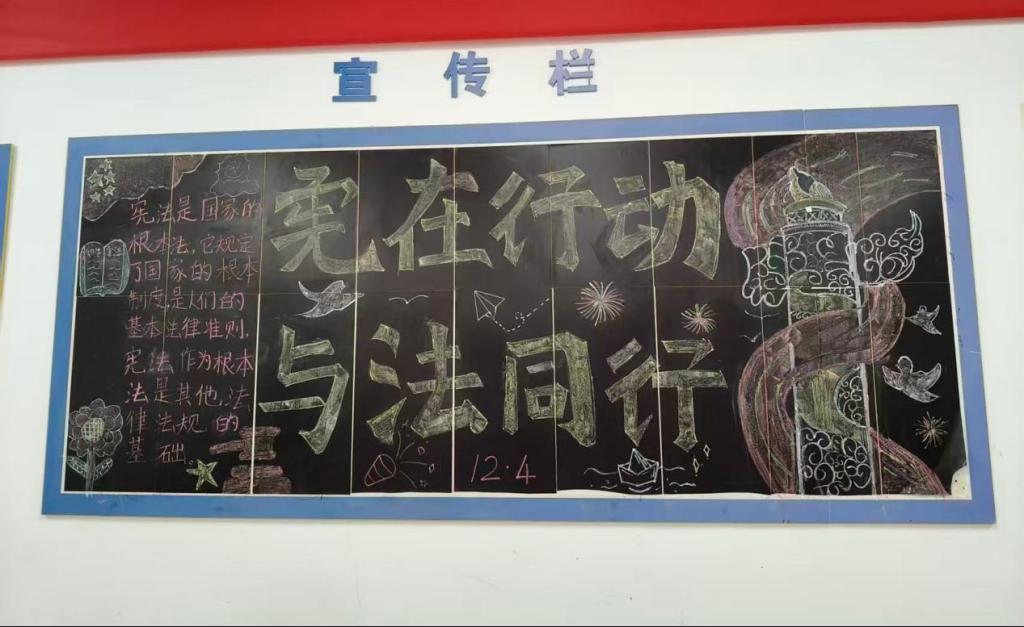 宣传栏
宪法是国家的
根本法,它规定
了国家的根本
制度是人们的
基本法律准则,
宪法作为根本
法是其他,法
律法规的
基础。
宪在行动
与法同行
12.4